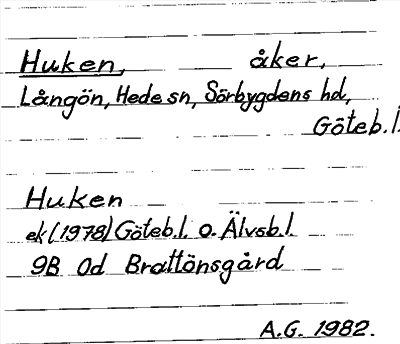 Huken, åker,
Långön, Hede sn, Sörbygdens hd,
Göteb. l.
Huken
ek (1978) Göteb. l. o. Älvsb. l
9B 0d Brattönsgård
A.G. 1982.